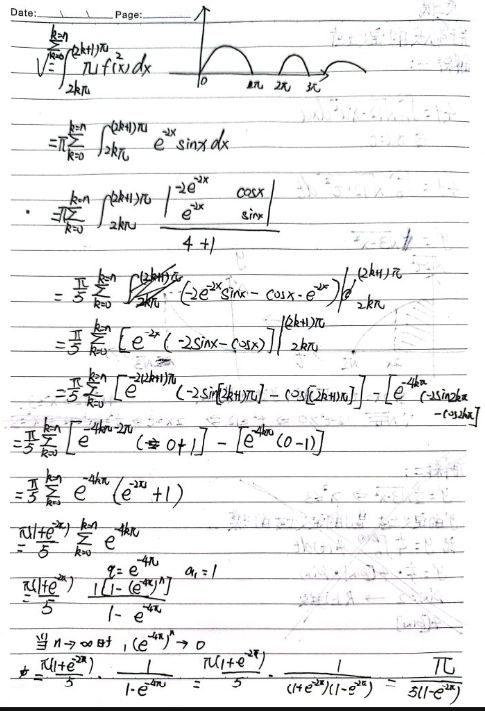 Date: \ \ Page:
V = Σ_{k=0}^{k=n} ∫_{2kπ}^{(2k+1)π} π f²(x) dx
0 π 2π 3π
= π Σ_{k=0}^{k=n} ∫_{2kπ}^{(2k+1)π} e^{-2x} sinx dx
= π Σ_{k=0}^{k=n} ∫_{2kπ}^{(2k+1)π} | -2e^{-2x} cosx |
| e^{-2x} sinx |
4+1
= π/5 Σ_{k=0}^{k=n} (-2e^{-2x} sinx - cosx · e^{-2x}) |_{2kπ}^{(2k+1)π}
= π/5 Σ_{k=0}^{k=n} [e^{-2x} (-2sinx - cosx)] |_{2kπ}^{(2k+1)π}
= π/5 Σ_{k=0}^{k=n} [e^{-2(2k+1)π} (-2sin[(2k+1)π] - cos[(2k+1)π]] - [e^{-4kπ} (-2sin2kπ - cos2kπ]
= π/5 Σ_{k=0}^{k=n} [e^{-4kπ-2π} (0+1] - [e^{-4kπ} (0-1)]
= π/5 Σ_{k=0}^{k=n} e^{-4kπ} (e^{-2π} + 1)
= π(1+e^{-2π})/5 Σ_{k=0}^{k=n} e^{-4kπ}
q = e^{-4π} a₁ = 1
= π(1+e^{-2π})/5 1[1-(e^{-4π})^n]/(1-e^{-4π})
当 n→∞时, (e^{-4π})^n → 0
= π(1+e^{-2π})/5 · 1/(1-e^{-4π}) = π(1+e^{-2π})/5 · 1/((1+e^{-2π})(1-e^{-2π})) = π/(5(1-e^{-2π}))